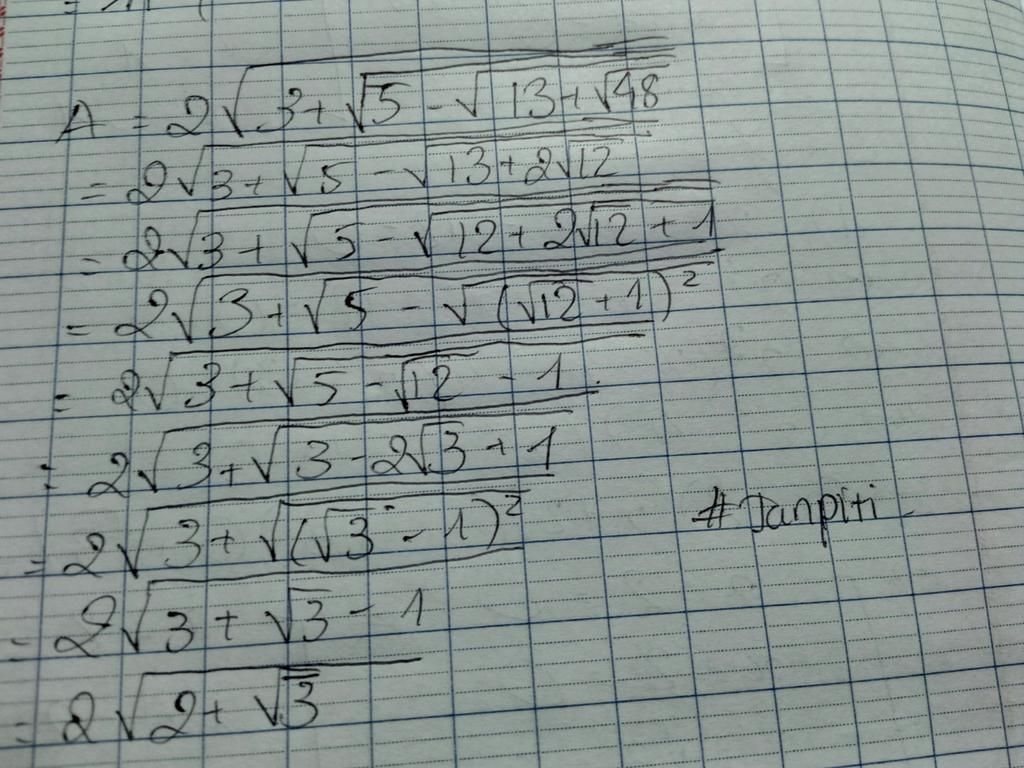 A = 2√3+√5-√13+√48
= 2√3+√5-√13+2√12
= 2√3+√5-√12+2√12+1
= 2√3+√5-√(√12+1)²
= 2√3+√5-√12-1.
= 2√3+√3-2√3+1
= 2√3+√(√3-1)²
= 2√3+√3-1
#Janpiti
= 2√2+√3